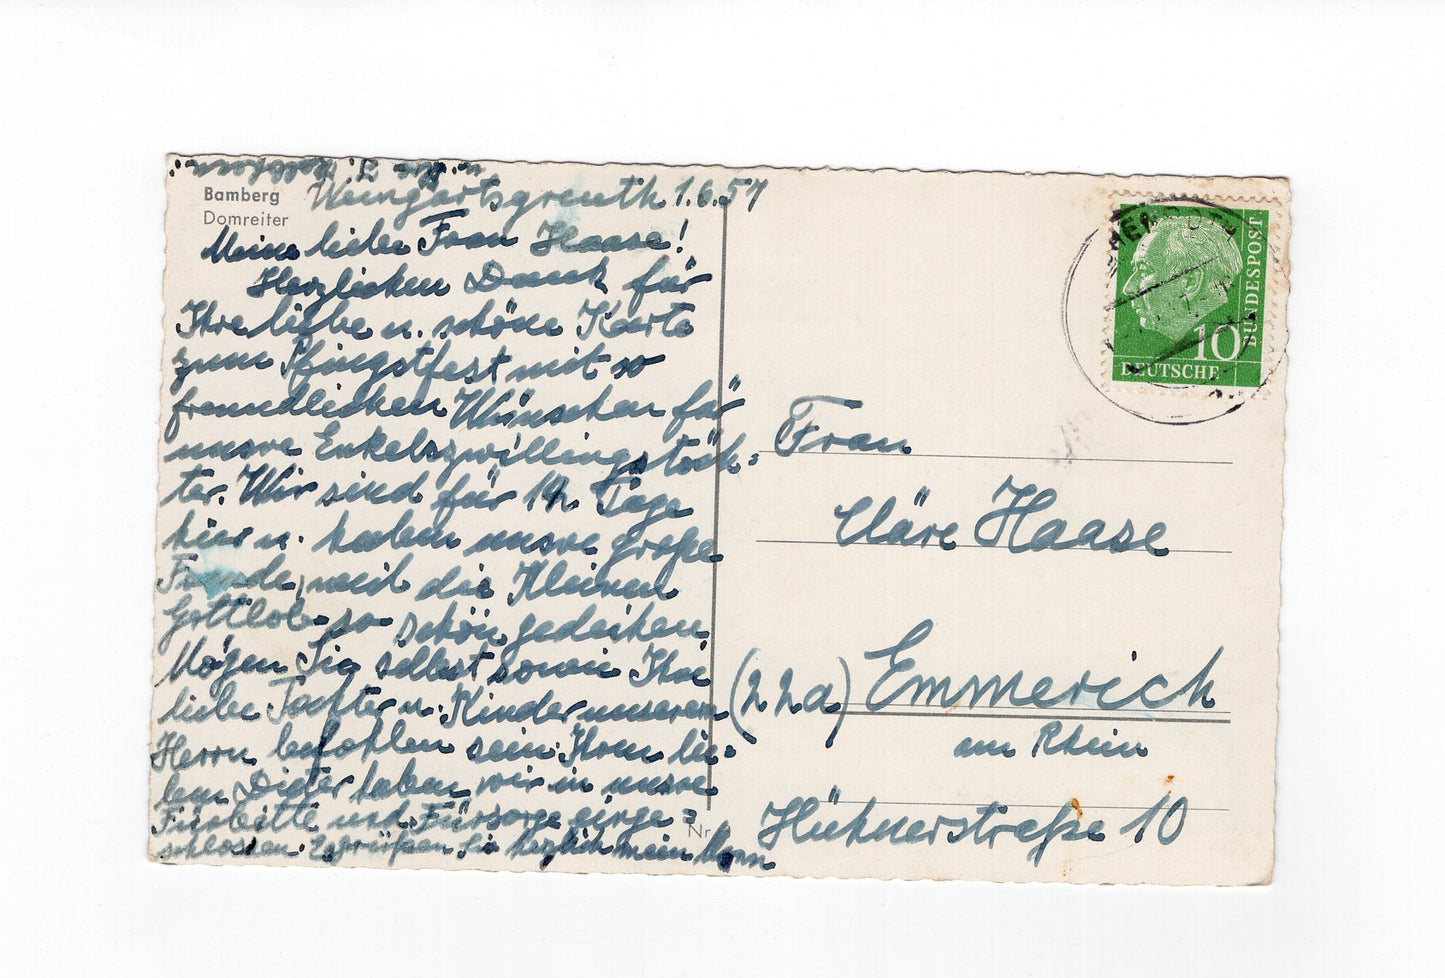 Bamberg
Domreiter
Weingartsgreuth 1.6.57
Meine liebe Frau Haase!
Herzlichen Dank für
Ihre liebe u. schöne Karte
zum Pfingstfest mit so
freundlichen Wünschen für
unsre Enkelszwillingstöch-
ter. Wir sind für 14 Tage
hier u. haben unsre große
Freude, weil die Kleinen
Gottlob so schön gedeihen.
Mögen Sie selbst sowie Ihre
liebe Tochter u. Kinder unserem
Herrn befohlen sein. Ihren lie-
ben Dieter haben wir in unsre
Fürbitte und Fürsorge einge-
schlossen. Es grüßen Sie herzlich mein Mann
u. Ihre
DEUTSCHE
BUNDESPOST
10
Frau
Cläre Haase
(22a) Emmerich
am Rhein
Hühnerstraße 10
Nr